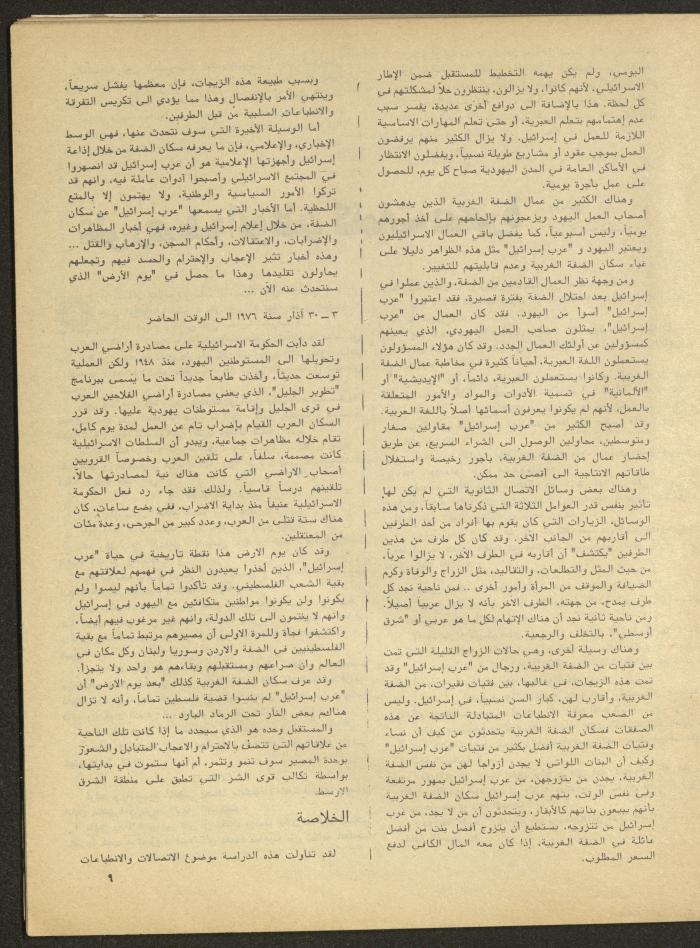 اليومي، ولم يكن يهمه التخطيط للمستقبل ضمن الإطار
الاسرائيلي، لأنهم كانوا، ولا يزالون، ينتظرون حلاً لمشكلتهم في
كل لحظة. هذا بالإضافة الى دوافع أخرى عديدة، يفسر سبب
عدم إهتمامهم بتعلم العبرية، أو حتى تعلم المهارات الاساسية
اللازمة للعمل في إسرائيل. ولا يزال الكثير منهم يرفضون
العمل بموجب عقود أو مشاريع طويلة نسبياً، ويفضلون الانتظار
في الأماكن العامة في المدن اليهودية صباح كل يوم، للحصول
على عمل بأجرة يومية.
وهناك الكثير من عمال الضفة الغربية الذين يدهشون
أصحاب العمل اليهود ويزعجونهم بإلحاحهم على أخذ أجورهم
يومياً، وليس أسبوعياً، كما يفضل باقي العمال الاسرائيليون
ويعتبر اليهود و "عرب إسرائيل" مثل هذه الظواهر دليلا على
غباء سكان الضفة الغربية وعدم قابليتهم للتغيير.
ومن وجهة نظر العمال القادمين من الضفة، والذين عملوا في
إسرائيل بعد احتلال الضفة بفترة قصيرة، فقد اعتبروا "عرب
إسرائيل" أسوأ من اليهود، فقد كان العمال من "عرب
إسرائيل"، يمثلون صاحب العمل اليهودي، الذي يعينهم
كمسؤولين عن أولئك العمال الجدد. وقد كان هؤلاء المسؤولون
يستعملون اللغة العبرية، أحياناً كثيرة في مخاطبة عمال الضفة
الغربية. وكانوا يستعملون العبرية، دائماً، أو "الإيديشية" أو
"الألمانية" في تسمية الأدوات والمواد والأمور المتعلقة
بالعمل، لأنهم لم يكونوا يعرفون أسمائها أصلاً باللغة العربية.
وقد أصبح الكثير من "عرب إسرائيل" مقاولين صغار
ومتوسطين، محاولين الوصول الى الشراء السريع، عن طريق
إحضار عمال من الضفة الغربية، بأجور رخيصة واستغلال
طاقاتهم الانتاجية الى أقصى حد ممكن.
وهناك بعض وسائل الاتصال الثانوية التي لم يكن لها
تأثير بنفس قدر العوامل الثلاثة التي ذكرناها سابقاً، ومن هذه
الوسائل، الزيارات التي كان يقوم بها أفراد من أحد الطرفين
الى أقاربهم من الجانب الآخر. وقد كان كل طرف من هذين
الطرفين "يكتشف" أن أقاربه في الطرف الآخر، لا يزالوا عرباً،
من حيث المثل والتطلعات، والتقاليد، مثل الزواج والوفاة وكرم
الضيافة والموقف من المرأة وأمور أخرى .. فمن ناحية نجد كل
طرف يمدح، من جهته، الطرف الآخر بأنه لا يزال عربياً أصيلاً.
ومن ناحية ثانية نجد أن هناك الإتهام لكل ما هو عربي أو "شرق
أوسطي"، بالتخلف والرجعية.
وهناك وسيلة أخرى، وهي حالات الزواج القليلة التي تمت
بين فتيات من الضفة الغربية، ورجال من "عرب إسرائيل" وقد
تمت هذه الزيجات، في غالبها، بين فتيات فقيرات، من الضفة
الغربية، وأقارب لهن، كبار السن نسبياً، في إسرائيل. وليس
من الصعب معرفة الانطباعات المتبادلة الناتجة عن هذه
الصفقات فسكان الضفة الغربية يتحدثون عن كيف أن نساء،
وفتيات الضفة الغربية أفضل بكثير من فتيات "عرب إسرائيل"
وكيف أن البنات اللواتي لا يجدن أزواجا لهن من نفس الضفة
الغربية، يجدن من يتزوجهن، من عرب إسرائيل بمهور مرتفعة
وفي نفس الوقت، يتهم عرب إسرائيل سكان الضفة الغربية
بأنهم يبيعون بناتهم كالأبقار، ويتحدثون أن من لا يجد، من عرب
إسرائيل من تتزوجه، يستطيع أن يتزوج أفضل بنت من أفضل
عائلة في الضفة الغربية، إذا كان معه المال الكافي لدفع
السعر المطلوب.
وبسبب طبيعة هذه الزيجات، فإن معظمها يفشل سريعاً،
وينتهي الأمر بالإنفصال وهذا مما يؤدي الى تكريس التفرقة
والانطباعات السلبية من قبل الطرفين.
أما الوسيلة الأخيرة التي سوف نتحدث عنها، فهي الوسط
الإخباري، والإعلامي، فإن ما يعرفه سكان الضفة من خلال إذاعة
إسرائيل وأجهزتها الإعلامية هو أن عرب إسرائيل قد انصهروا
في المجتمع الاسرائيلي وأصبحوا أدوات عاملة فيه، وانهم قد
تركوا الأمور السياسية والوطنية، ولا يهتمون إلا بالمتع
اللحظية. أما الأخبار التي يسمعها "عرب إسرائيل" عن سكان
الضفة، من خلال إعلام إسرائيل وغيره، فهي أخبار المظاهرات
والإضرابات، والاعتقالات، وأحكام السجن، والإرهاب والقتل ...
وهذه أخبار تثير الإعجاب والإحترام والحسد فيهم وتجعلهم
يحاولون تقليدها وهذا ما حصل في "يوم الأرض" الذي
سنتحدث عنه الآن ...
٣ ــ ٣٠ آذار سنة ١٩٧٦ الى الوقت الحاضر
لقد دأبت الحكومة الاسرائيلية على مصادرة أراضي العرب
وتحويلها الى المستوطنين اليهود، منذ ١٩٤٨ ولكن العملية
توسعت حديثاً، وأخذت طابعاً جديداً تحت ما يسمى ببرنامج
"تطوير الجليل"، الذي يعني مصادرة أراضي الفلاحين العرب
في قرى الجليل وإقامة مستوطنات يهودية عليها. وقد قرر
السكان العرب القيام بإضراب تام عن العمل لمدة يوم كامل،
تقام خلاله مظاهرات جماعية، ويبدو أن السلطات الاسرائيلية
كانت مصممة، سلفاً، على تلقين العرب وخصوصاً القرويين
أصحاب الاراضي التي كانت هناك نية لمصادرتها حالاً،
تلقينهم درساً قاسياً. ولذلك فقد جاء رد فعل الحكومة
الاسرائيلية عنيفاً منذ بداية الاضراب، ففي بضع ساعات، كان
هناك ستة قتلى من العرب، وعدد كبير من الجرحى، وعدة مئات
من المعتقلين.
وقد كان يوم الارض هذا نقطة تاريخية في حياة "عرب
إسرائيل"، الذين أخذوا يعيدون النظر في فهمهم لعلاقتهم مع
بقية الشعب الفلسطيني. وقد تأكدوا تماماً بأنهم ليسوا ولم
يكونوا ولن يكونوا مواطنين متكافئين مع اليهود في إسرائيل
وانهم لا ينتمون الى تلك الدولة، وانهم غير مرغوب فيهم أيضاً.
واكتشفوا فجأة وللمرة الاولى أن مصيرهم مرتبط تماماً مع بقية
الفلسطينيين في الضفة والاردن وسوريا ولبنان وكل مكان في
العالم وان صراعهم ومستقبلهم وبقاءهم هو واحد ولا يتجزأ.
وقد عرف سكان الضفة الغربية كذلك "بعد يوم الارض" أن
"عرب إسرائيل" لم ينسوا قضية فلسطين تماماً، وأنه لا تزال
هناكم بعض النار تحت الرماد البارد ...
والمستقبل وحده هو الذي سيحدد ما إذا كانت تلك الناحية
من علاقاتهم التي تتصف بالاحترام والاعجاب المتبادل والشعور
بوحدة المصير سوف تنمو وتثمر، أم أنها ستموت في بدايتها،
بواسطة تكالب قوى الشر التي تطبق على منطقة الشرق
الاوسط.
الخلاصة
لقد تناولت هذه الدراسة موضوع الاتصالات والانطباعات
٩